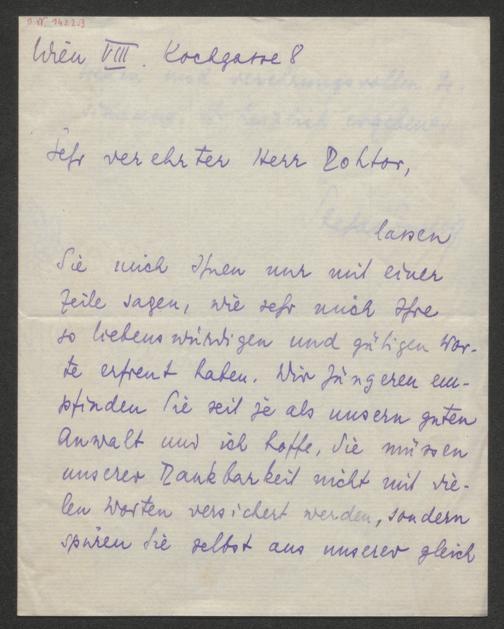 Wien VIII. Kochgasse 8
Sehr verehrter Herr Doktor,
lassen
Sie mich Ihnen nur mit einer
Zeile sagen, wie sehr mich Ihre
so liebenswürdigen und gütigen Wor-
te erfreut haben. Wir Jüngeren em-
pfinden Sie seit je als unsern guten
Anwalt und ich hoffe, Sie müssen
unserer Dankbarkeit nicht mit vie-
len Worten versichert werden, sondern
spüren Sie selbst aus unserer gleich